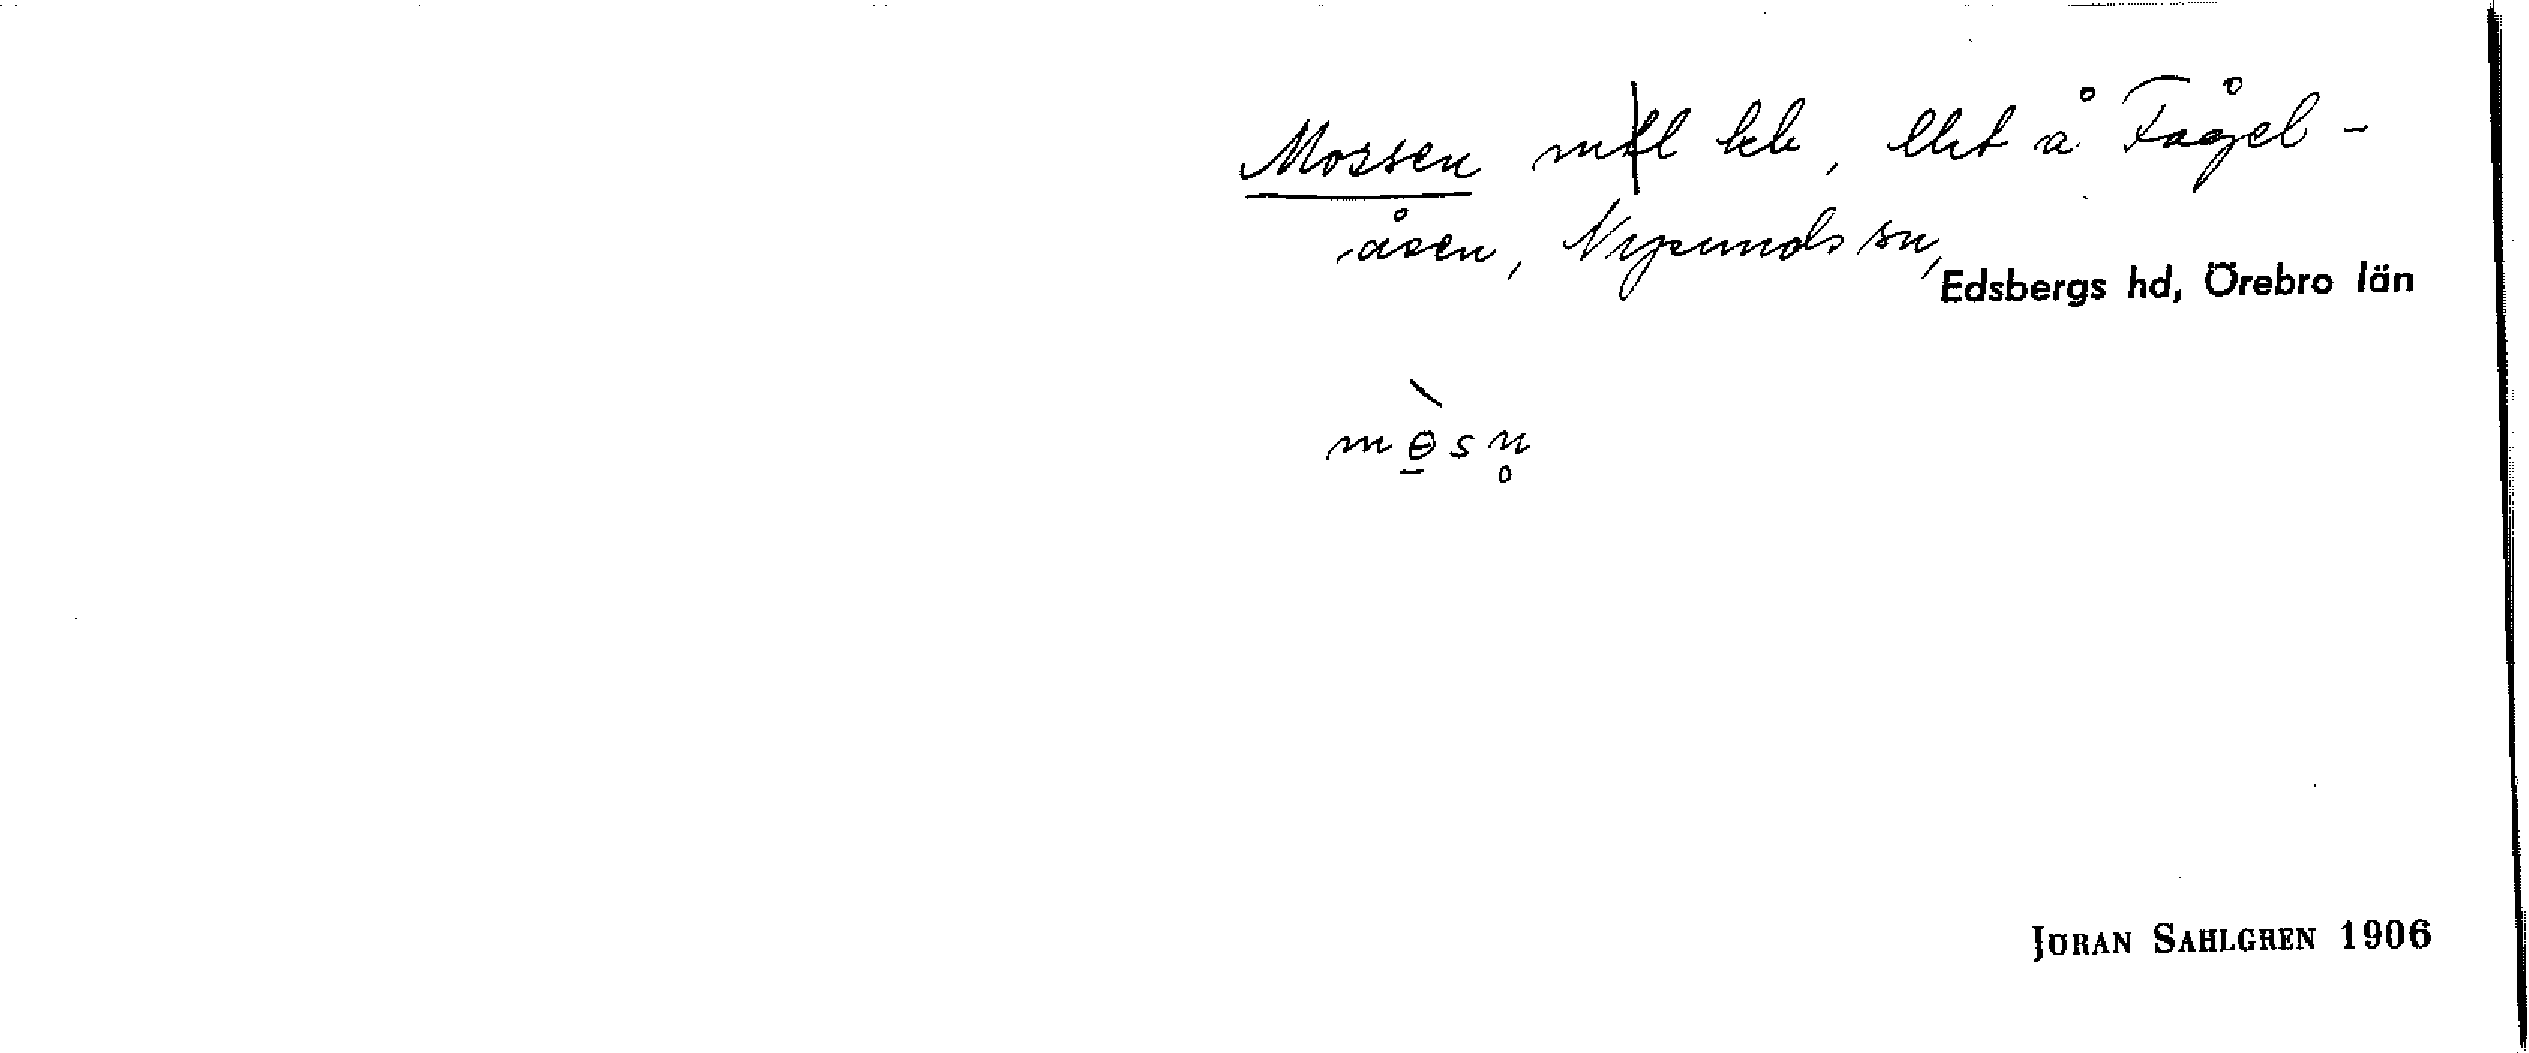 Mossen mtl lhh, lht å Fågel-
åsen, Nysunds sn,
Edsbergs hd, Örebro län
m ө̱̀ s n̥
JÖRAN SAHLGREN 1906